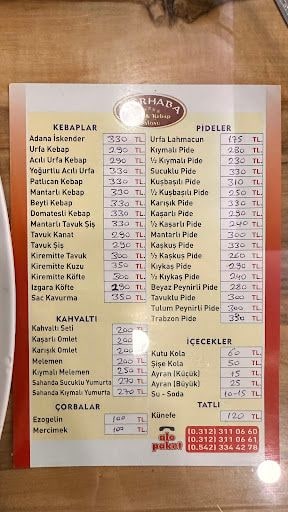 MERHABA
& Kebap
Salonu
KEBAPLAR
Adana İskender 330 TL
Urfa Kebap 290 TL
Acılı Urfa Kebap 290 TL
Yoğurtlu Acılı Urfa 330 TL
Patlıcan Kebap 330 TL
Mantarlı Kebap 330 TL
Beyti Kebap 330 TL
Domatesli Kebap 330 TL
Mantarlı Tavuk Şiş 330 TL
Tavuk Kanat 290 TL
Tavuk Şiş 290 TL
Kiremitte Tavuk 300 TL
Kiremitte Kuzu 350 TL
Kiremitte Köfte 300 TL
Izgara Köfte 290 TL
Sac Kavurma 350 TL
KAHVALTI
Kahvaltı Seti 200 TL
Kaşarlı Omlet 200 TL
Karışık Omlet 200 TL
Melemen 200 TL
Kıymalı Melemen 250 TL
Sahanda Sucuklu Yumurta 270 TL
Sahanda Kıymalı Yumurta 270 TL
ÇORBALAR
Ezogelin 100 TL
Mercimek 100 TL
PİDELER
Urfa Lahmacun 175 TL
Kıymalı Pide 280 TL
½ Kıymalı Pide 230 TL
Sucuklu Pide 330 TL
Kuşbaşılı Pide 310 TL
½ Kuşbaşılı Pide 250 TL
Karışık Pide 330 TL
Kaşarlı Pide 290 TL
½ Kaşarlı Pide 240 TL
Mantarlı Pide 300 TL
Kaşkuş Pide 330 TL
½ Kaşkuş Pide 260 TL
Kıykaş Pide 290 TL
½ Kıykaş Pide 240 TL
Beyaz Peynirli Pide 280 TL
Tavuklu Pide 300 TL
Tulum Peynirli Pide 300 TL
Trabzon Pide 350 TL
İÇECEKLER
Kutu Kola 60 TL
Şişe Kola 50 TL
Ayran (Küçük) 15 TL
Ayran (Büyük) 25 TL
Su - Soda 10-15 TL
TATLI
Künefe 120 TL
alo
paket
(0.312) 311 06 60
(0.312) 311 06 61
(0.542) 334 42 78